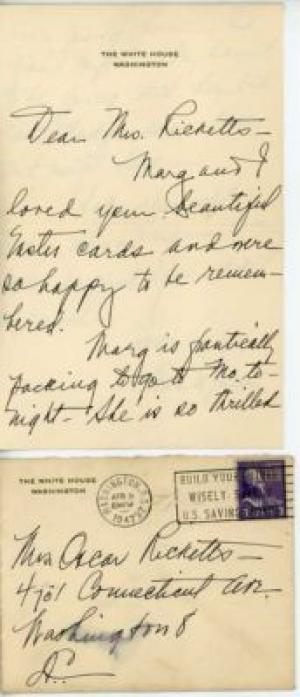 THE WHITE HOUSE
WASHINGTON
Dear Mrs. Ricketts—
Marg and I
loved your beautiful
Easter cards and were
so happy to be remem-
bered.
Marg is frantically
packing to go to Mo. to-
night - She is so thrilled
THE WHITE HOUSE
WASHINGTON
WASHINGTON, D.C.
APR
1947
BUILD YOUR
WISELY
U.S. SAVINGS
Mrs Oscar Ricketts—
4701 Connecticut Av.
Washington 8
D.C.